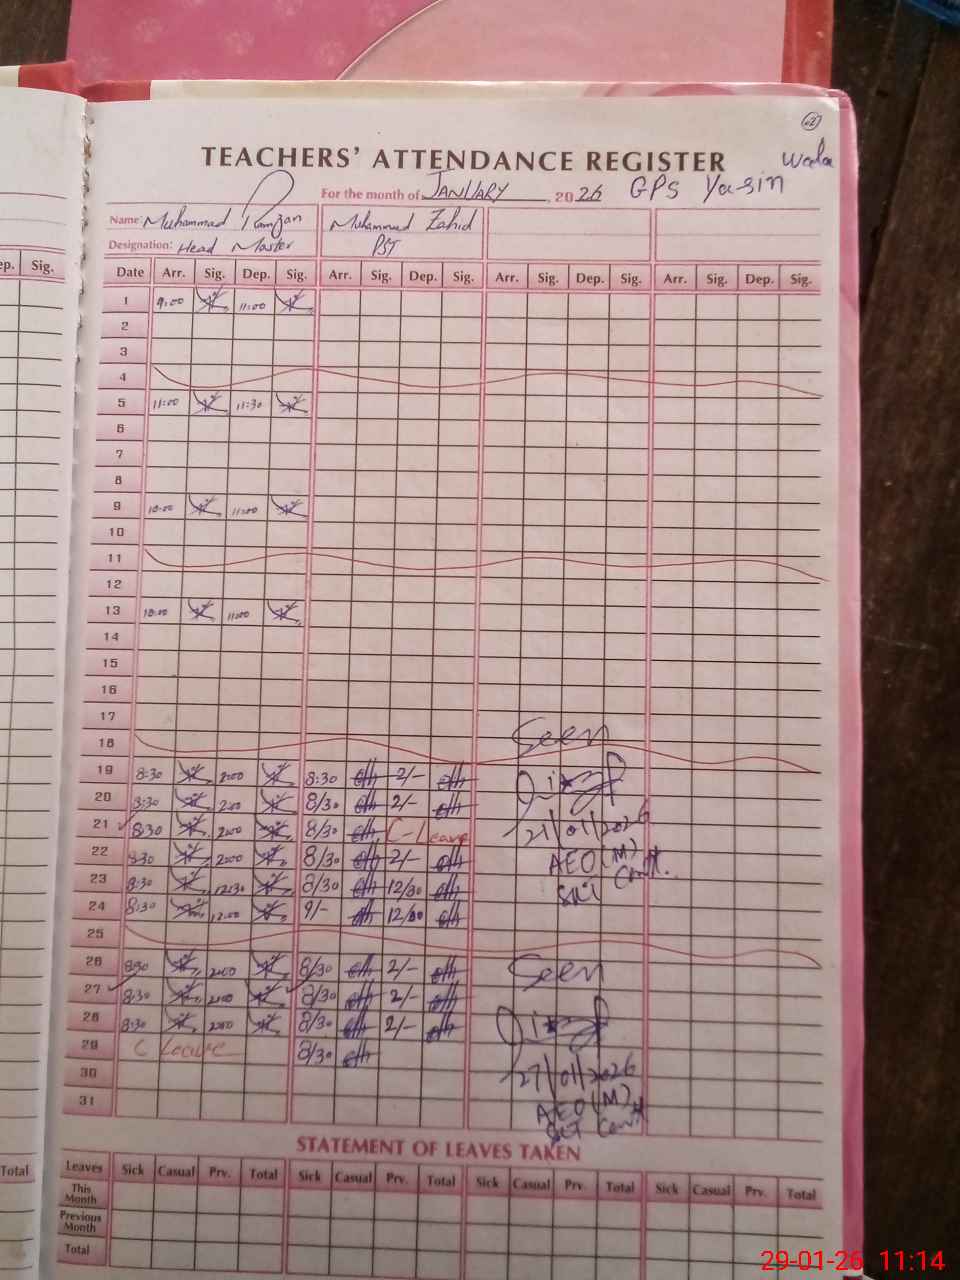 TEACHERS' ATTENDANCE REGISTER
For the month of JANUARY, 2026 GPS Yasin Wala
Name: Muhammad Ramzan Muhammad Zahid
Designation: Head Master PST
ep. Sig. Date Arr. Sig. Dep. Sig. Arr. Sig. Dep. Sig. Arr. Sig. Dep. Sig. Arr. Sig. Dep. Sig.
1 9:00 11:00
2
3
4
5 11:00 11:30
6
7
8
9 10:00 11:00
10
11
12
13 10:00 11:00
14
15
16
17
18 Seen
19 8:30 2:00 8:30 2/-
20 8:30 2:00 8/30 2/-
21 8:30 2:00 8/30 C-Leave 21/01/2026
22 8:30 2:00 8/30 2/- AEO (M)
23 8:30 12:30 8/30 12/30 Cantt.
24 8:30 12:00 9/- 12/30 Skt
25
26 8:30 2:00 8/30 2/- Seen
27 8:30 2:00 8/30 2/-
28 8:30 2:00 8/30 2/-
29 C Leave 8/30
30 27/01/2026
31 AEO (M)
Skt Cantt
STATEMENT OF LEAVES TAKEN
Total Leaves Sick Casual Prv. Total Sick Casual Prv. Total Sick Casual Prv. Total Sick Casual Prv. Total
This Month
Previous Month
Total
29-01-26 11:14